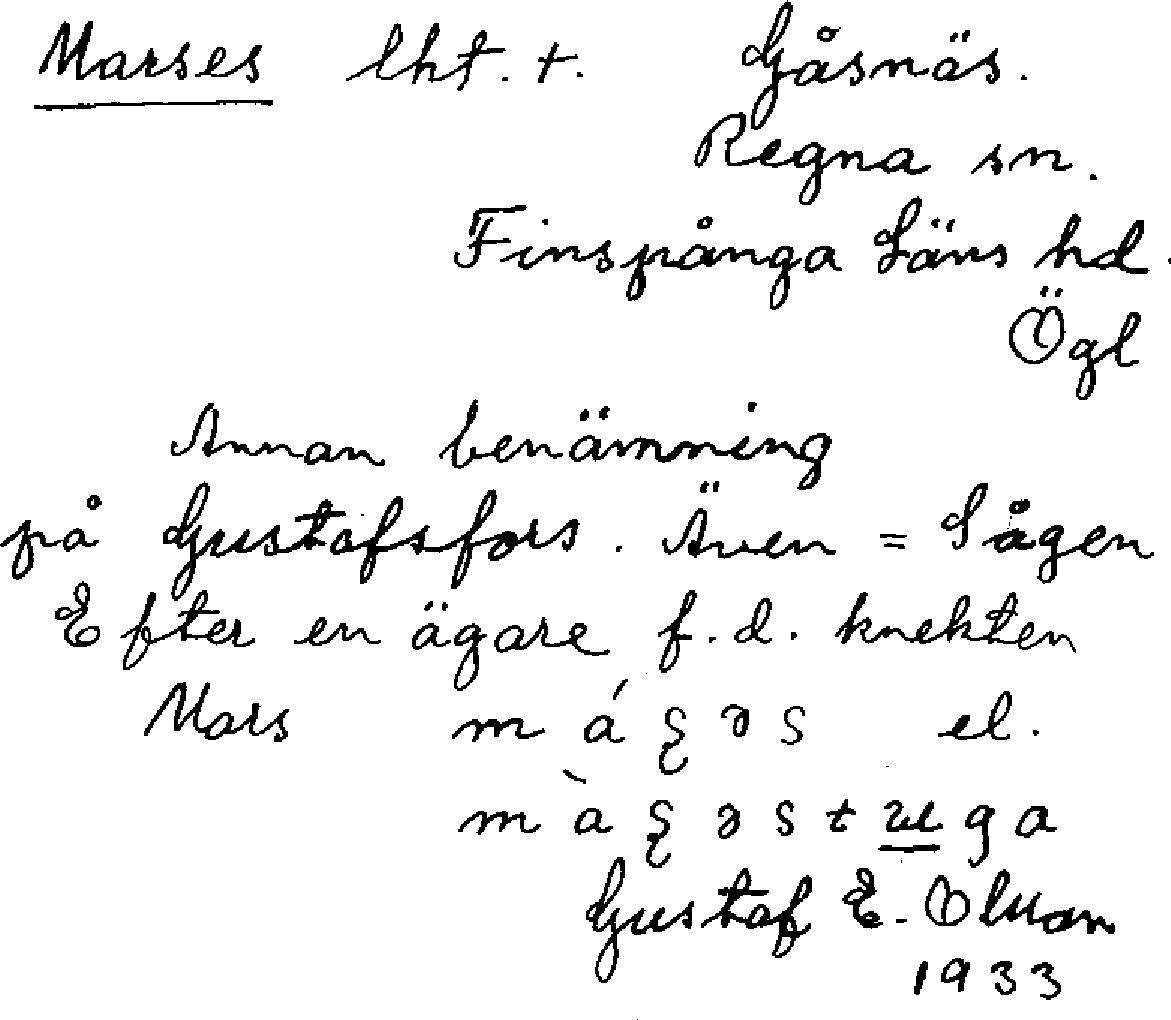 Marses lht. +. Gåsnäs.
Regna sn.
Finspånga Läns hd.
Ögl
Annan benämning
på Gustafsfors. Även = Sågen
Efter en ägare f.d. knekten
Mars el.
Gustaf E. Olsson
1933